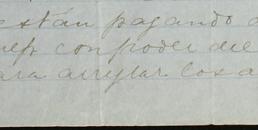 están pagando
con poder de
para arreglar los a